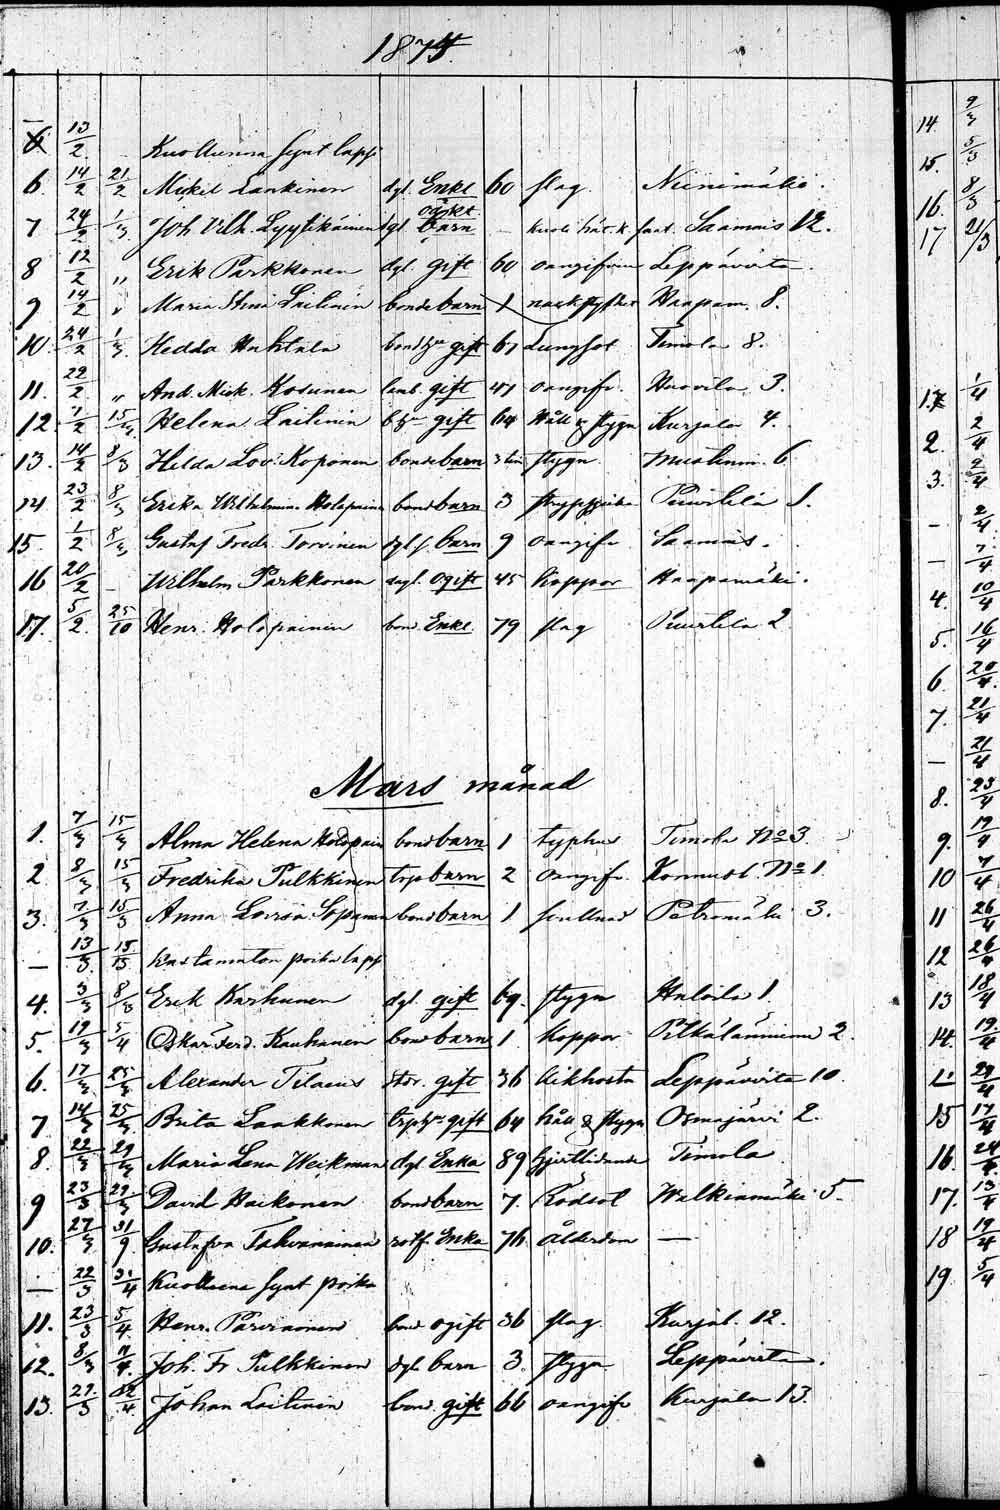 1875
6 13/2 Kuolluena synt lapsi
6. 14/2 21/2 Mickel Lankinen dgl. Enkl 60 slag Niinimäki.
7 24/2 1/3 Joh. Vilh. Lyytikäinen dgl oäkt. barn — Saamais 12.
8 12/2 " Erik Parkkonen dgl. gift 60 oangifven Leppävirta.
9 14/2 " Maria Stina Laitinen bonde barn 1 Haapam. 8.
10. 24/2 1/3 Hedda Huhtala gift 67 Lungsot Timola 8.
11. 22/2 " And. Mick. Kosunen gift 47 oangifv. Huovila 3.
12. 7/2 15/3 Helena Laitinen gift 64 Håll & stygn Kurjala 4.
13. 14/2 8/3 Helda Lov: Koponen bonde barn stygn Mustinm. 6
14 23/2 8/3 Erika Wilhelmina Holopainen bond barn 3 strypsjuka Puurtila 1.
15. 1/2 8/3 Gustaf Fredr. Torvinen dgl. s. barn 9 oangifv Saamais.
16 20/2 — Wilhelm Parkkonen ogift 45 koppor Haapamäki.
17. 5/2. 25/10 Henr. Holopainen bon. Enkl. 79 slag Puurtila 2.
Mars månad
1. 7/3 15/3 Alma Helena Holopain bond barn 1 typhus Timola No 3.
2 8/3 15/3 Fredrika Pulkkinen torp barn 2 oangifv. Konnusl. No 1.
3. 7/3 15/3 Anna Lovisa Sopanen bond barn 1 svullnad Petromäki 3.
— 13/3. 15/3 kastamaton poika laps
4. 3/3 8/3 Erik Karhunen dgl. gift 69. stygn Haloila 1.
5. 19/3 5/4 Oskar Ferd. Kauhanen bond barn 1. koppor Pitkälänniemi 2.
6. 17/3 25/3 Alexander Tilaeus gift 36 Leppävirta 10.
7 14/3 25/3 Brita Laakkonen gift 64 håll & stygn Osmajärvi 2.
8. 22/3 29/3 Maria Lena Weikman dgl Enka 89 Timola
9 23/3 29/3 David Haikonen bond barn 7. Rödsot 5.
10. 27/3 31/9 Gustafva Tahvanainen rotf. Enka 76. ålderdom —
— 22/3 31/4 Kuolleena synt poika
11. 23/3 5/4. Henr. Parviainen bond ogift 36 slag. Kurjal. 12.
12. 8/3 11/4. Joh. Fr Pulkkinen dgl barn 3. stygn Leppävirta.
13. 29/3 12/4. Johan Laitinen bond. gift 66 oangifv Kurjala 13.
14. 9/3
15. 5/3
16. 8/3
17 21/3
1. 1/4
2. 2/4
3. 2/4
— 2/4
— 7/4
4. 10/4
5. 16/4
6. 20/4
7. 21/4
— 21/4
8. 23/4
9. 19/4
10 7/4
11 26/4
12 26/4
13 18/4
14. 19/4
23/4
15 17/4
16. 24/4
17. 13/4
18 19/4
19. 5/4